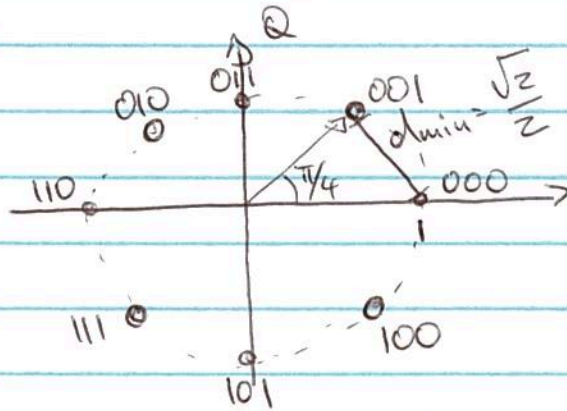 Q
011
010
001
dmin = √2/2
π/4
110
000
1
111
100
101